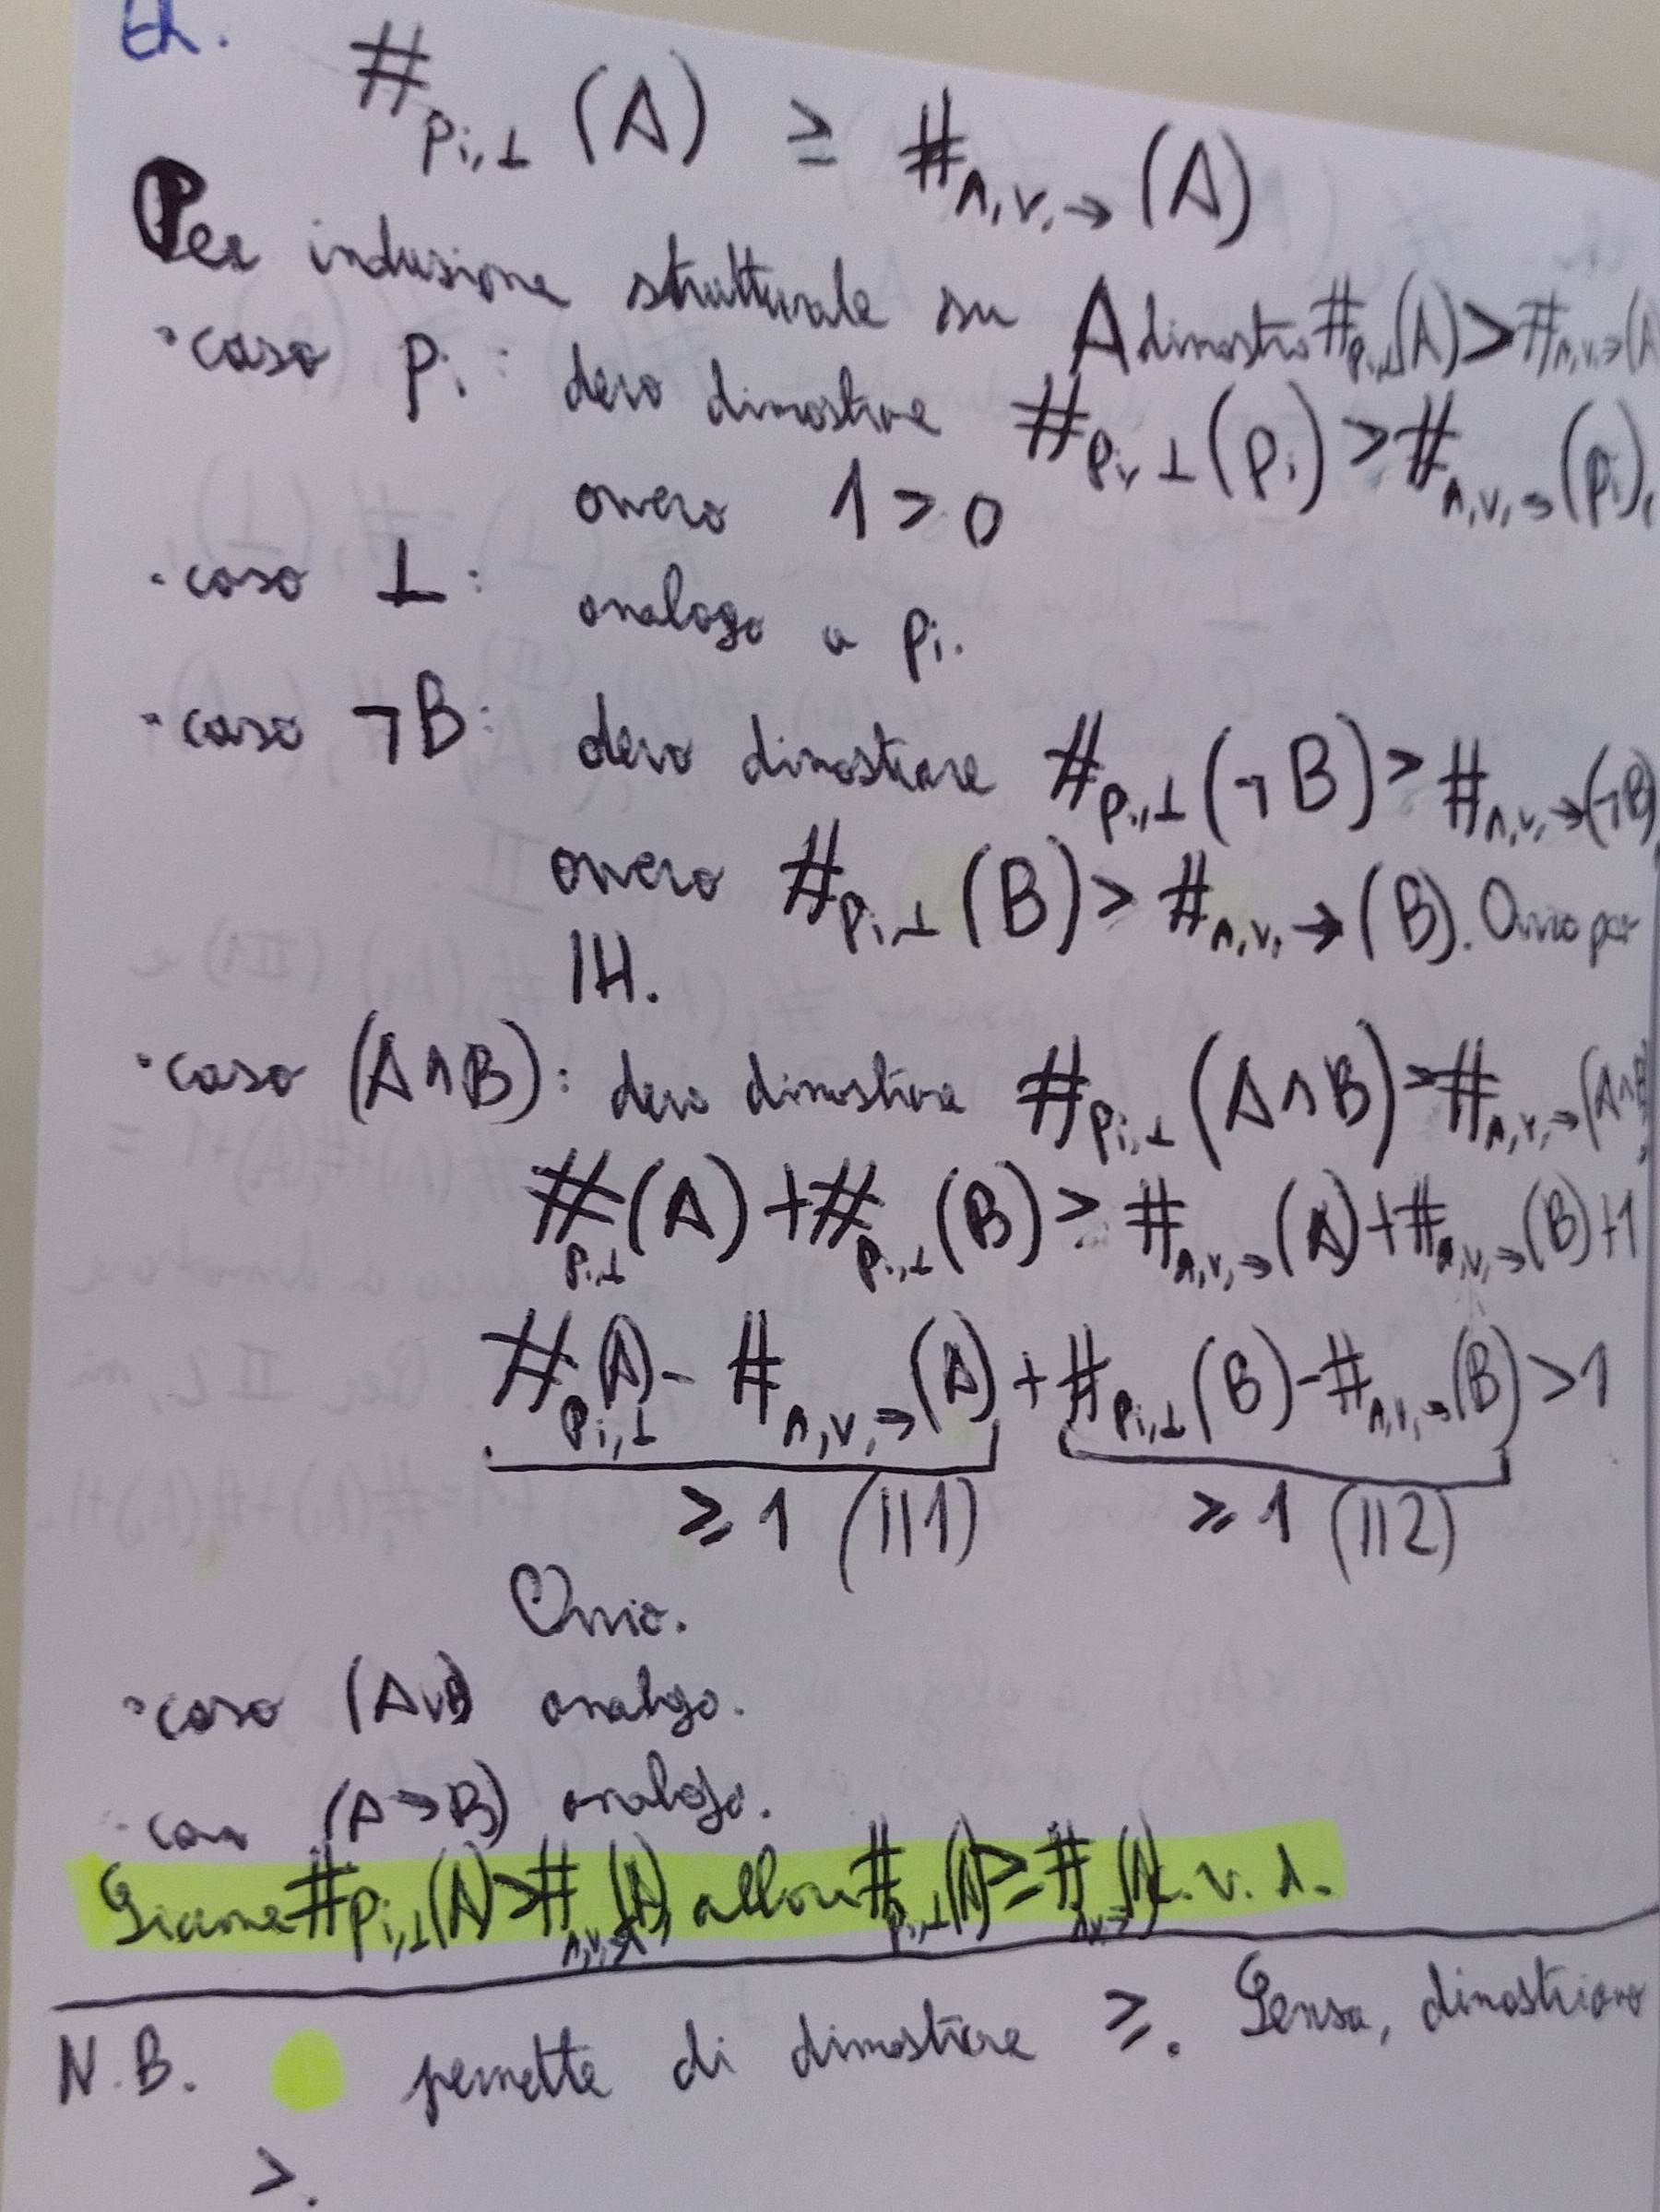 Es.
#pi,⊥ (A) ≥ #∧,∨,→ (A)
Per induzione strutturale su A dimostro #pi,⊥(A) > #∧,∨,→(A
· caso pi : devo dimostrare #pi,⊥(pi) > #∧,∨,→(pi),
ovvero 1 > 0
· caso ⊥ : analogo a pi.
· caso ¬B : devo dimostrare #pi,⊥(¬B) > #∧,∨,→(¬B)
ovvero #pi,⊥(B) > #∧,∨,→(B). Ovvio per
IH.
· caso (A∧B) : devo dimostrare #pi,⊥(A∧B) > #∧,∨,→(A∧B
#pi,⊥(A) + #pi,⊥(B) > #∧,∨,→(A) + #∧,∨,→(B) + 1
#pi,⊥(A) - #∧,∨,→(A) + #pi,⊥(B) - #∧,∨,→(B) > 1
≥ 1 (II1) ≥ 1 (II2)
Ovvio.
· caso (A∨B) analogo.
· caso (A→B) analogo.
Siccome #pi,⊥(A) > #∧,∨,→(A) allora #pi,⊥(A) ≥ #∧,∨,→(A) c.v.d.
N.B. permette di dimostrare ≥. Senza, dimostriamo
>.